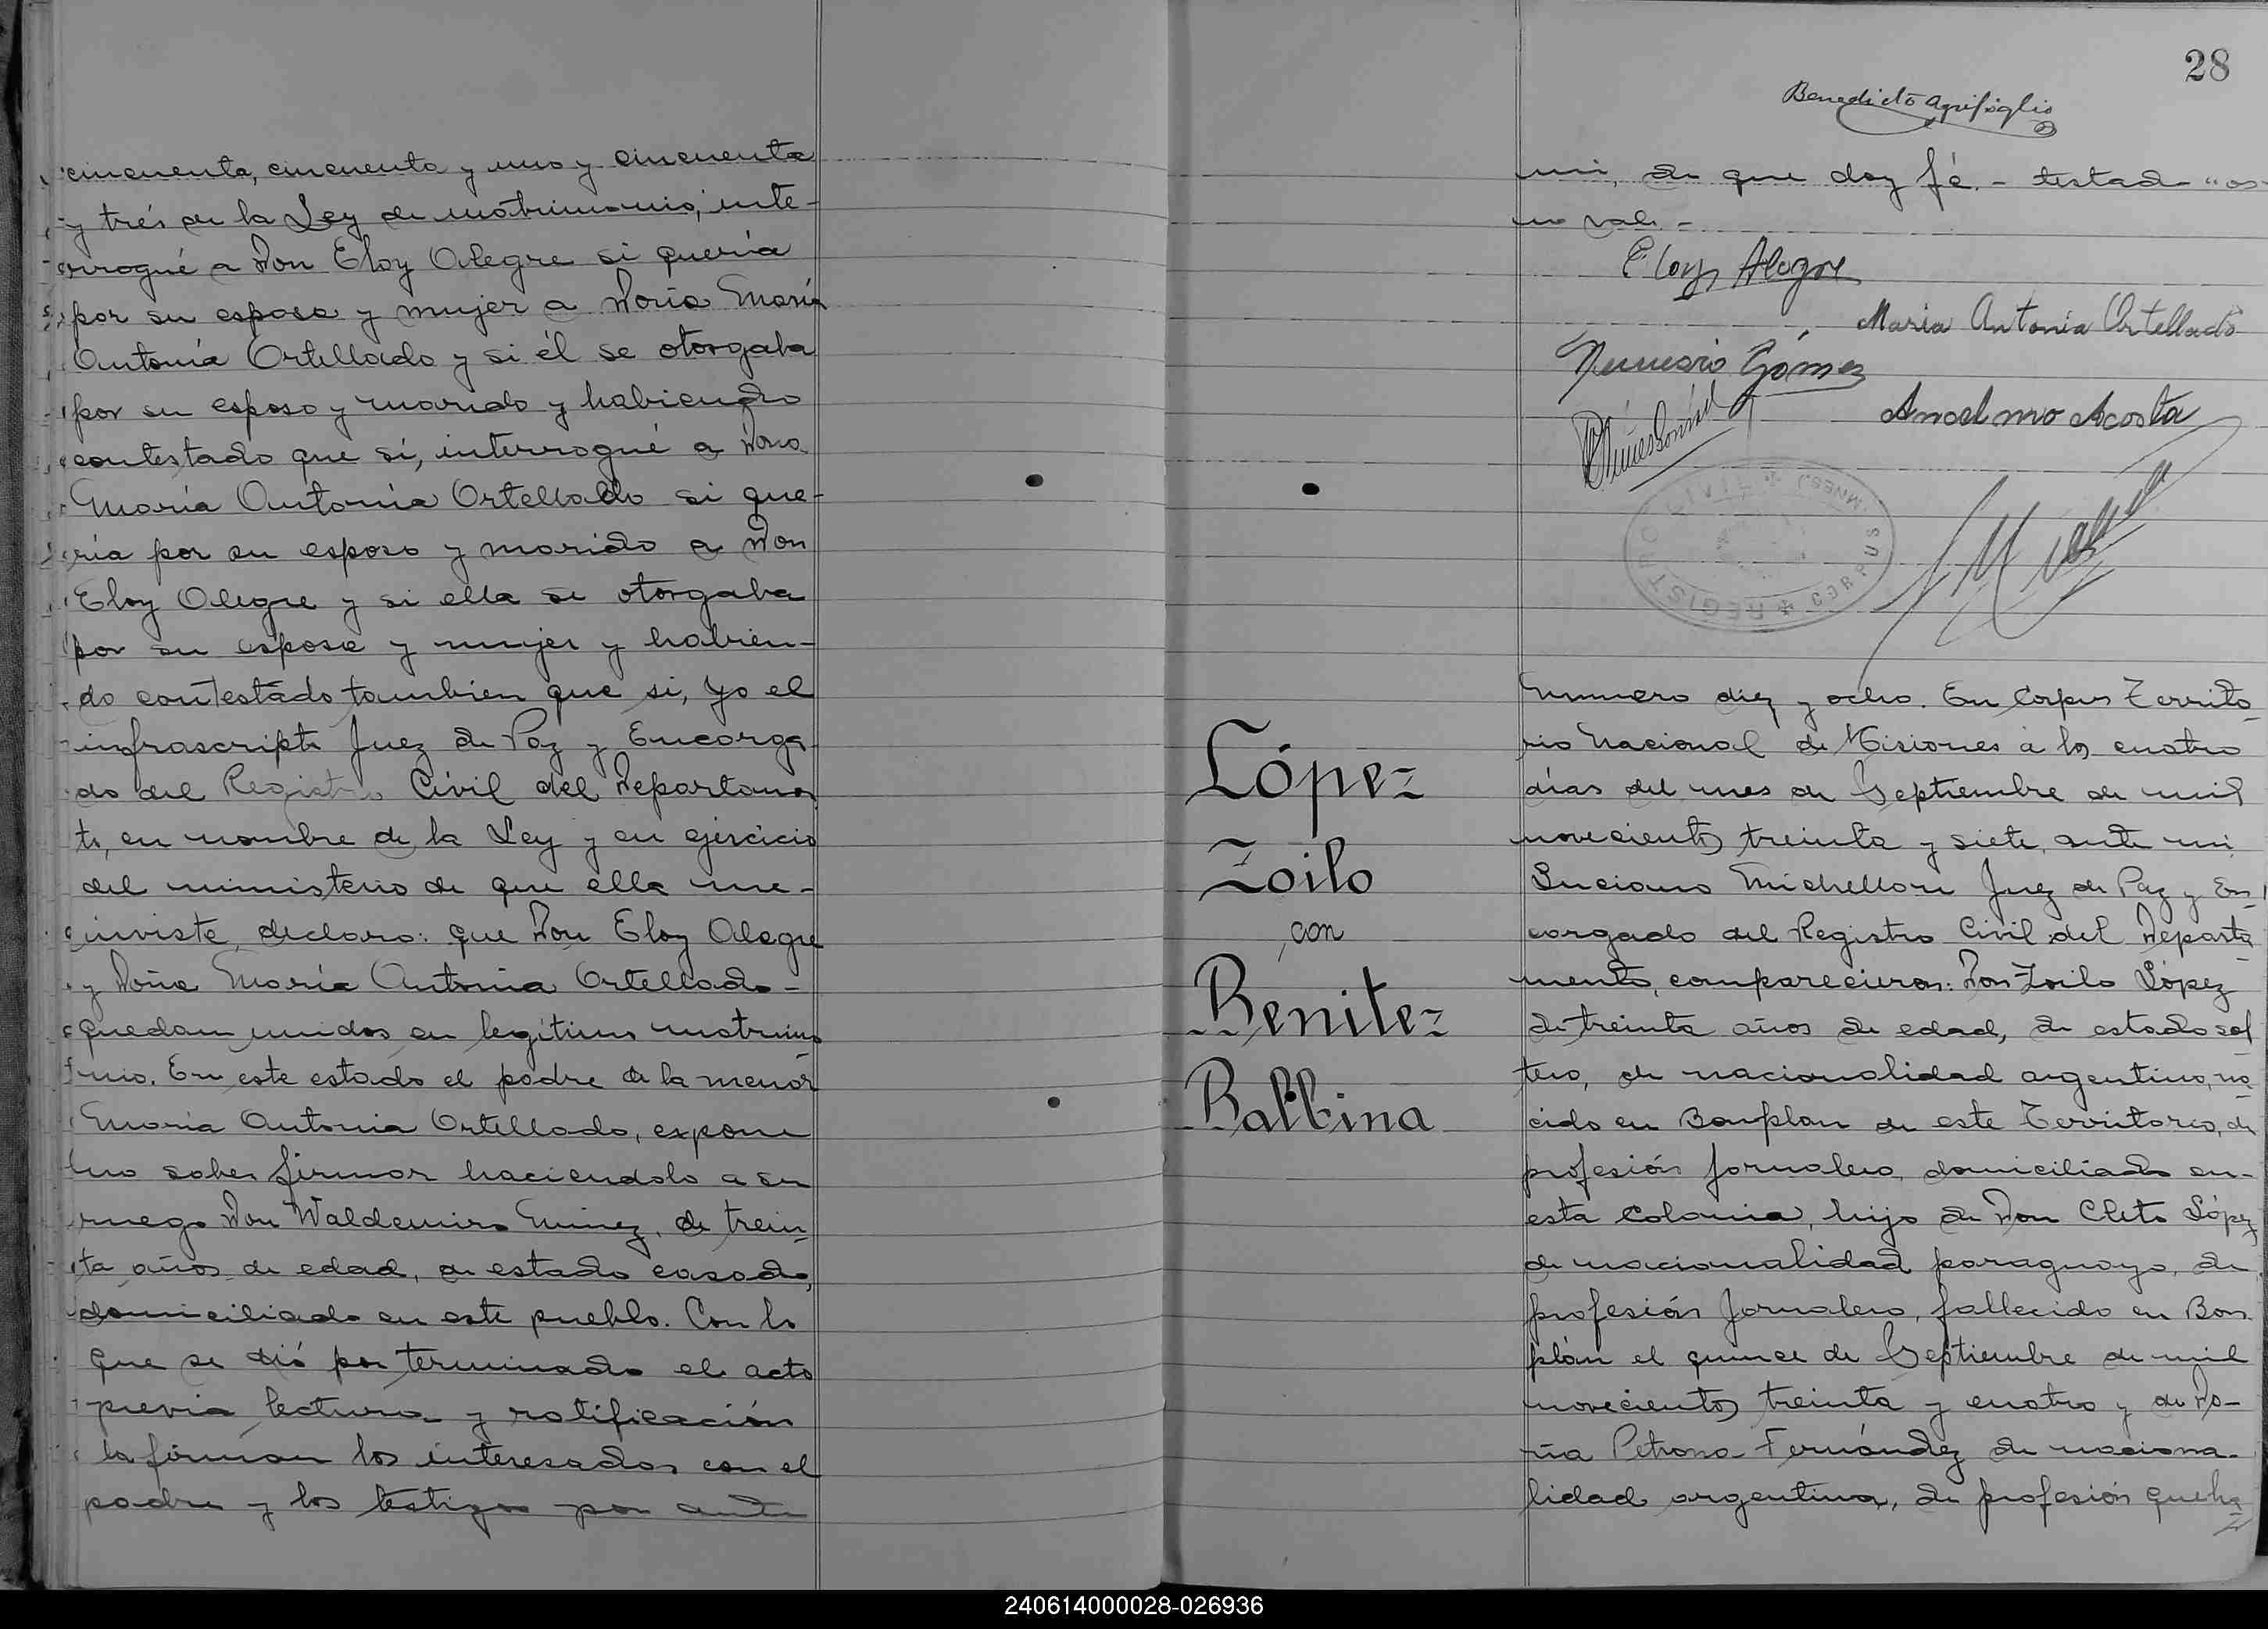 cincuenta, cincuenta y uno y cincuenta
y trés de la Ley de matrimonio, inte-
rrogué a Don Eloy Alegre si quería
por su esposa y mujer a Doña María
Antonia Ortellado y si él se otorgaba
por su esposo y marido y habiendo
contestado que sí, interrogué a Doña
María Antonia Ortellado si que-
ría por su esposo y marido a Don
Eloy Alegre y si ella se otorgaba
por su esposa y mujer y habien-
do contestado tambien que si, yo el
infrascripto Juez de Paz y Encarga
do del Registro Civil del Departamen
to, en nombre de la Ley y en ejercicio
del ministerio de que ella me-
inviste, declaro: que Don Eloy Alegre
y Doña María Antonia Ortellado-
quedan unidos en legítimo matrimo
nio. En este estado el padre de la menor
María Antonia Ortellado, expone
no saber firmar haciendolo a su
ruego Don Waldemiro Nuñez, de trein
ta años de edad, de estado casado,
domiciliado en este pueblo. Con lo
que se dió por terminado el acto
previa lectura y ratificación
la firman los interesados con el
padre y los testigos por ante
28
Benedicto Agrifoglio
mi, de que doy fé.- testado "os
no vale-
Eloy Alegre
Maria Antonia Ortellado
Nemesio Gómez
Anselmo Acosta
REGISTRO CIVIL CORPUS (MNES.)
López
Zoilo
con
Benitez
Balbina
Número diez y ocho. En Corpus Territo
rio Nacional de Misiones a los cuatro
días del mes de Septiembre de mil
novecientos treinta y siete, ante mi
Luciano Michellon Juez de Paz y En
cargado del Registro Civil del Departa
mento, comparecieron: Don Zoilo López
de treinta años de edad, de estado sol
tero, de nacionalidad argentino, na
cido en Bonplan de este Territorio, de
profesión jornalero, domiciliado en-
esta Colonia, hijo de Don Cleto López
de nacionalidad paraguayo, de
profesión Jornalero, fallecido en Bon
plán el quince de Septiembre de mil
novecientos treinta y cuatro y de Do-
ña Petrona Fernández de naciona-
lidad argentina, de profesión queha
240614000028-026936